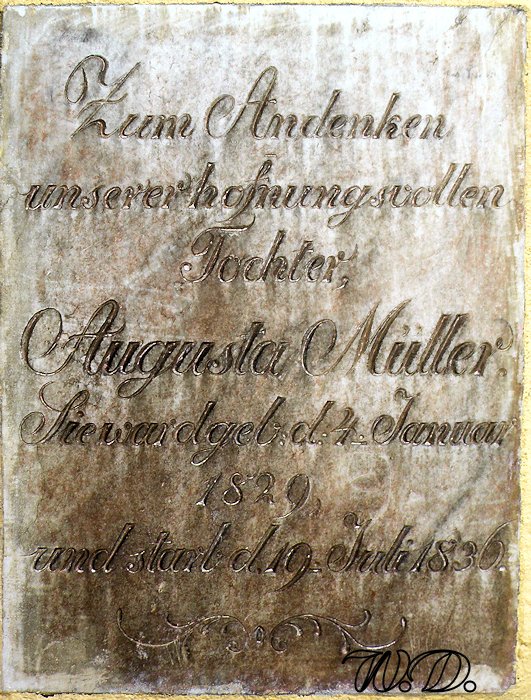 Zum Andenken
unserer hofnungsvollen
Tochter,
Augusta Müller.
Sie ward geb. d. 4. Januar
1829,
und starb d. 19. Juli 1836.
W.D.